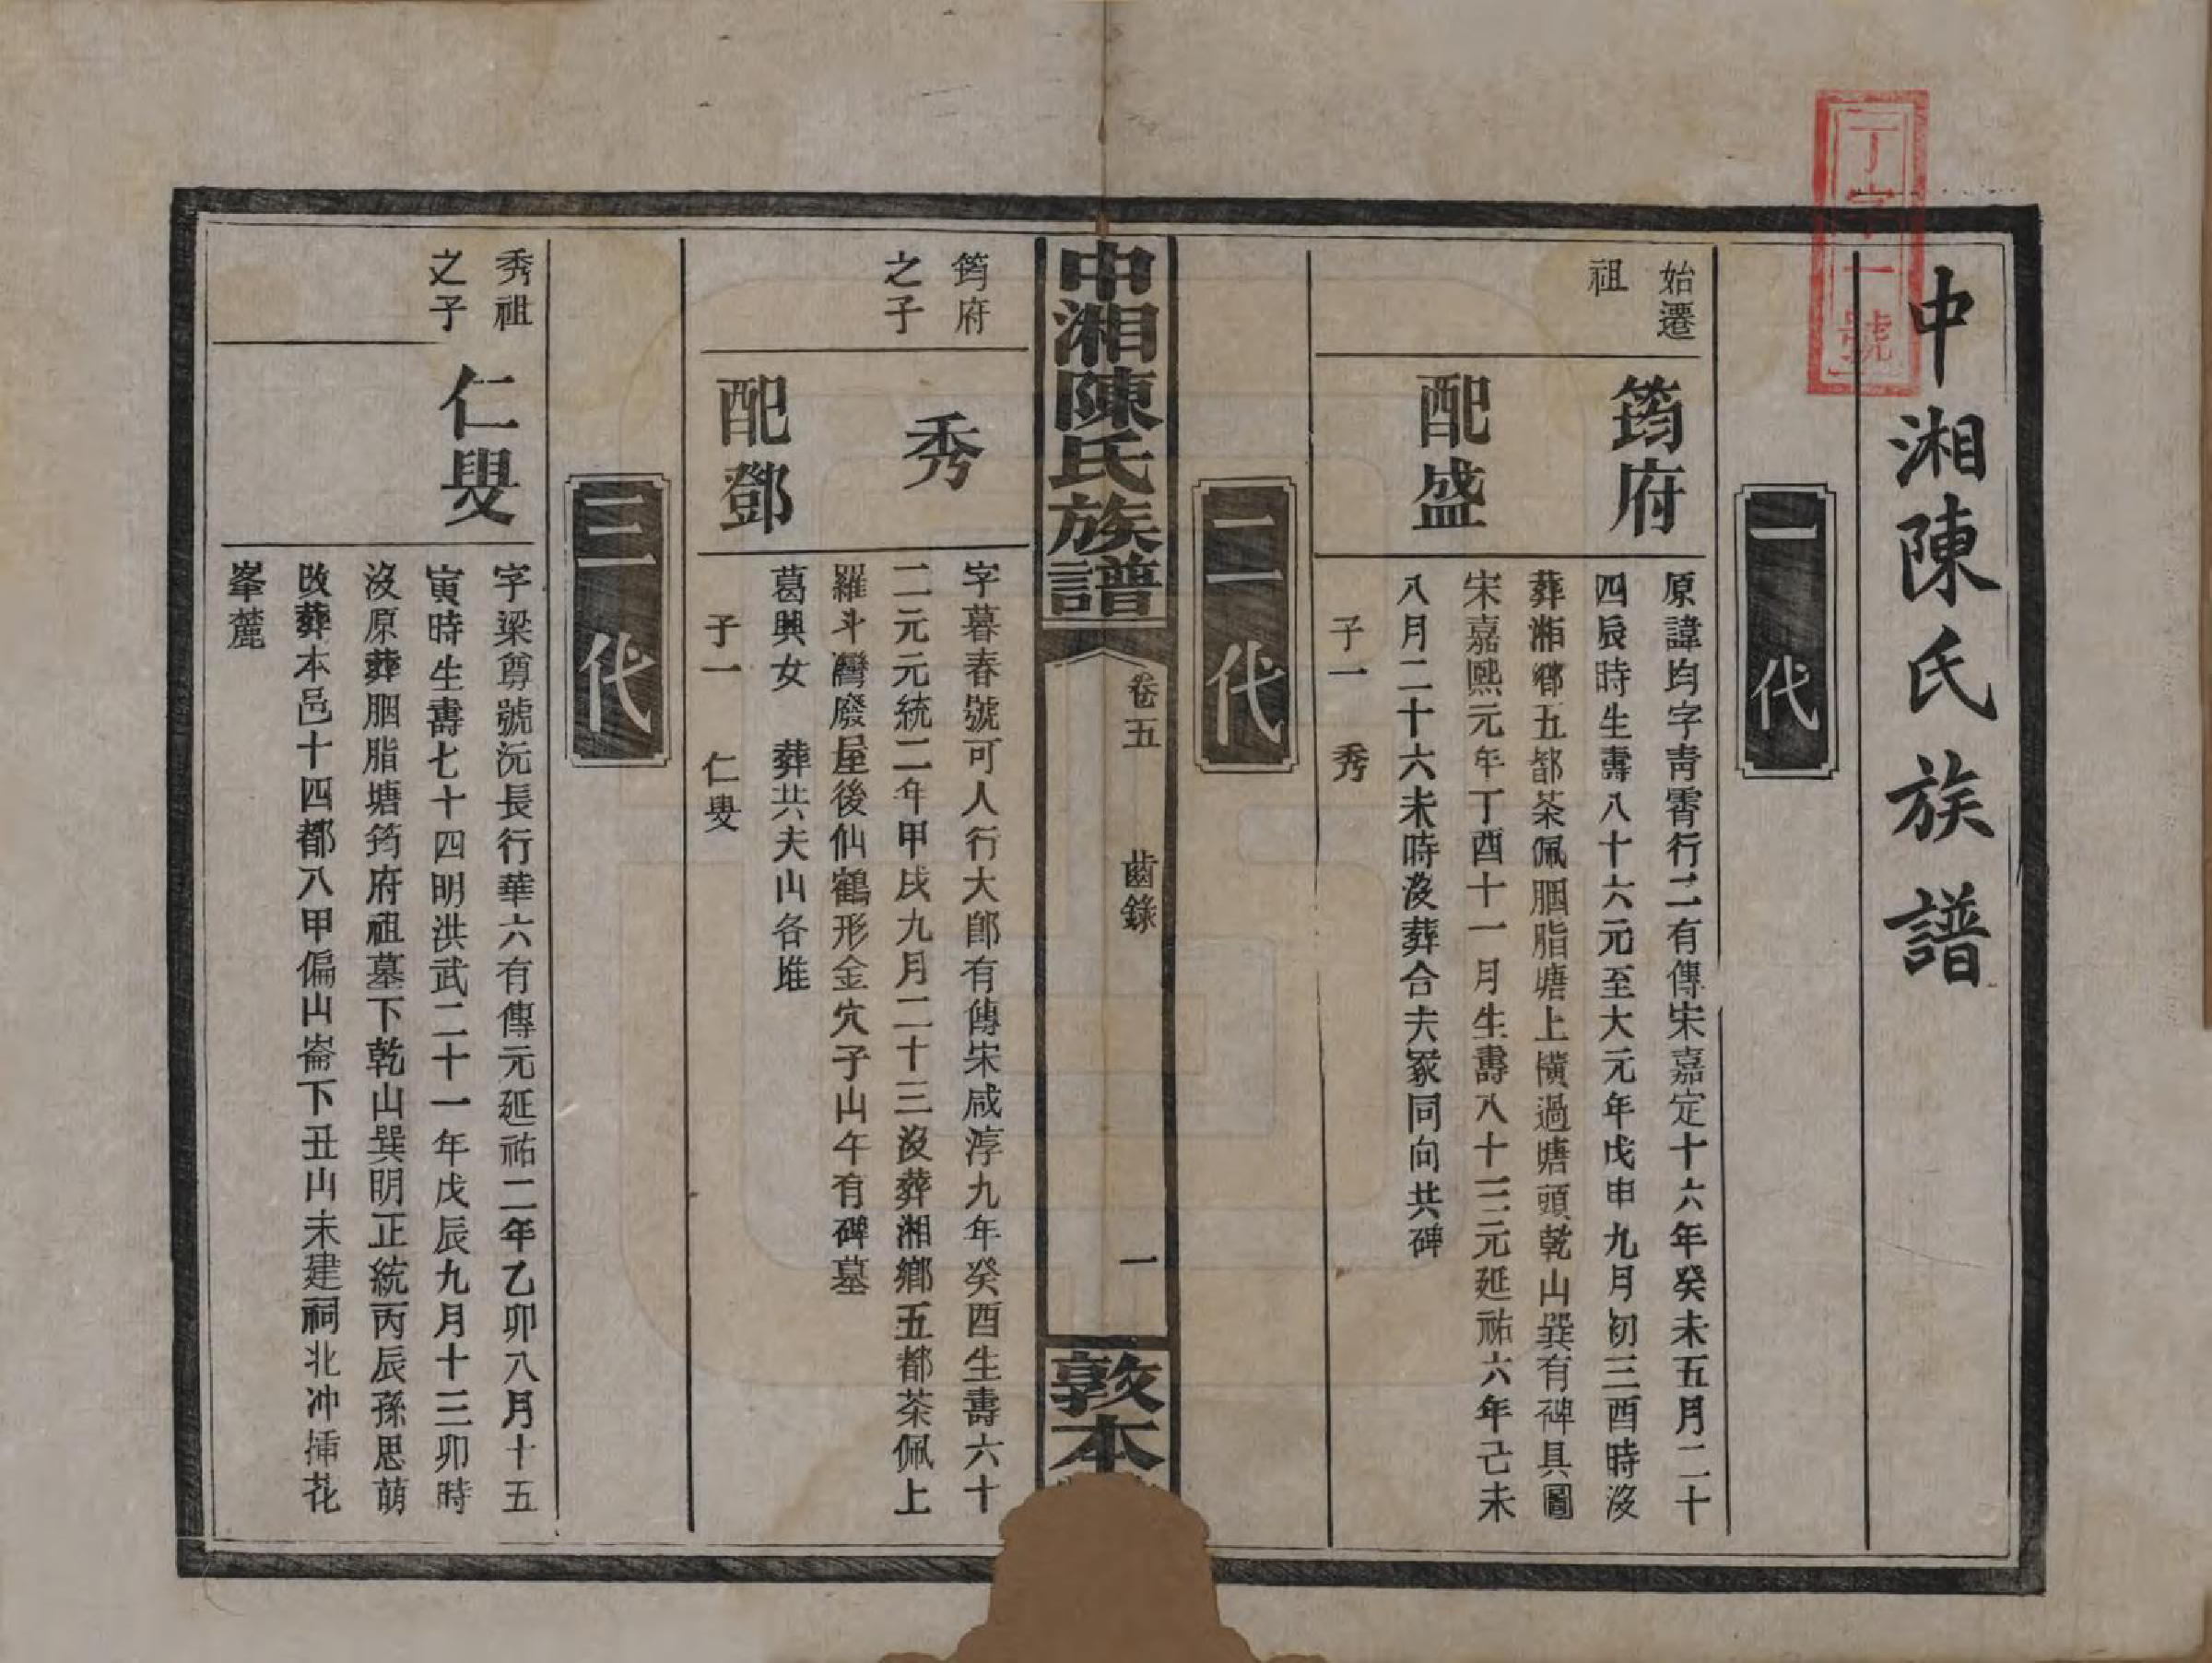 丁字一號
中湘陳氏族譜
一代
始遷
祖
筠府
原諱均字靑霄行二有傳宋嘉定十六年癸未五月二十
四辰時生壽八十六元至大元年戊申九月初三酉時沒
葬湘鄉五都茶佩胭脂塘上橫過塘頭乾山巽有碑具圖
配盛
宋嘉熙元年丁酉十一月生壽八十三元延祐六年己未
八月二十六未時沒葬合夫冢同向共碑
子一 秀
二代
中湘陳氏族譜
卷五
齒錄
一
敦本
筠府
之子
秀
字暮春號可人行大郎有傳宋咸淳九年癸酉生壽六十
二元元統二年甲戌九月二十三沒葬湘鄉五都茶佩上
羅斗灣廢屋後仙鶴形金穴子山午有碑墓
配鄧
葛興女 葬共夫山各堆
子一 仁叟
三代
秀祖
之子
仁叟
字梁尊號沅長行華六有傳元延祐二年乙卯八月十五
寅時生壽七十四明洪武二十一年戊辰九月十三卯時
沒原葬胭脂塘筠府祖墓下乾山巽明正統丙辰孫思萌
改葬本邑十四都八甲偏山崙下丑山未建祠北冲插花
峯麓